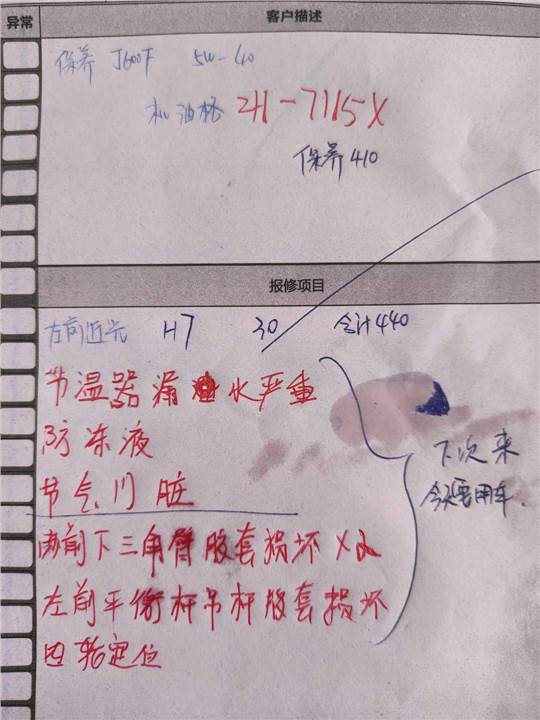 异常 客户描述
保养 J600F 5W-40
机油格 ZH-7115X
保养410
报修项目
左前近光 H7 30 合计440
节温器漏水严重
防冻液
节气门脏
下次来
今天要用车.
两前下三角臂胶套损坏 X2
左前平衡杆吊杆胶套损坏
四轮定位